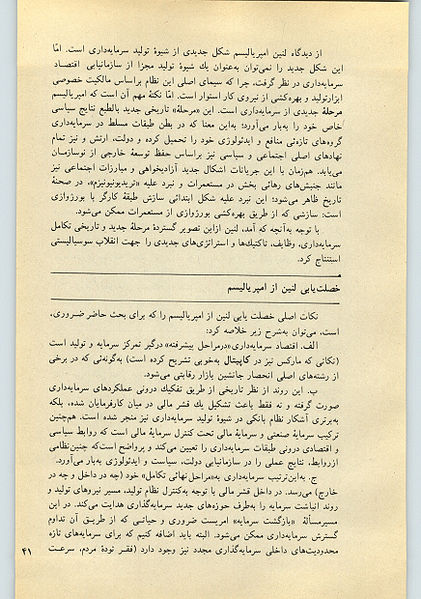 از دیدگاه لنین امپریالیسم شکل جدیدی از شیوهٔ تولید سرمایه‌داری است. امّا
این شکل جدید را نمی‌توان به‌عنوان یک شیوهٔ تولید مجزا از سازمانیابی اقتصاد
سرمایه‌داری در نظر گرفت، چرا که سیمای اصلی این نظام براساس مالکیت خصوصی
ابزارتولید و بهره‌کشی از نیروی کار استوار است. امّا نکتهٔ مهم آن است که امپریالیسم
مرحلهٔ جدیدی از سرمایه‌داری است. این «مرحلهٔ» تاریخی جدید بالطبع نتایج سیاسی
خاص خود را به‌بار می‌آورد؛ به‌این معنا که در بطن طبقات مسلط در سرمایه‌داری
گروه‌های تازه‌ئی منافع و ایدئولوژی خود را تحمیل کرده و دولت، ارتش و نیز تمام
نهادهای اصلی اجتماعی و سیاسی نیز براساس حفظ توسعهٔ خارجی از نوسازمان
می‌یابد. هم‌زمان با این جریانات اشکال جدید آزادیخواهی و مبارزات اجتماعی نیز
مانند جنبش‌های رهائی بخش در مستعمرات و نبرد علیه «تریدیونیونیزم»، در صحنهٔ
تاریخ ظاهر می‌شود؛ این نبرد علیه شکل ابتدائی سازش طبقهٔ کارگر با بورژوازی
است؛ سازشی که از طریق بهره‌کشی بورژوازی از مستعمرات ممکن می‌شود.
با توجه به‌آنچه که آمد، لنین ازاین تصویر گستردهٔ مرحلهٔ جدید و تاریخی تکامل
سرمایه‌داری، وظایف، تاکتیک‌ها و استراتژی‌های جدیدی را جهت انقلاب سوسیالیستی
استنتاج کرد.
خصلت‌یابی لنین از امپریالیسم
نکات اصلی خصلت یابی لنین از امپریالیسم را که برای بحث حاضر ضروری،
است، می‌توان به‌شرح زیر خلاصه کرد:
الف. اقتصاد سرمایه‌داری «درمراحل پیشرفته» درگیر تمرکز سرمایه و تولید است
(نکاتی که مارکس نیز در کاپیتال به‌خوبی تشریح کرده است) به‌گونه‌ئی که در برخی
از رشته‌های اصلی انحصار جانشین بازار رقابتی می‌شود.
ب. این روند از نظر تاریخی از طریق تفکیک درونی عملکردهای سرمایه‌داری
صورت گرفته و نه فقط باعث تشکیل یک قشر مالی در میان کارفرمایان شده، بلکه
به‌برتری آشکار نظام بانکی در شیوهٔ تولید سرمایه‌داری نیز منجر شده است. هم‌چنین
ترکیب سرمایهٔ صنعتی و سرمایهٔ مالی تحت کنترل سرمایهٔ مالی است که روابط سیاسی
و اقتصادی درونی طبقات سرمایه‌داری را تعیین می‌کند و پرواضح است‌که چنین‌نظامی
ازروابط، نتایج عملی را در سازمانیابی دولت، سیاست و ایدئولوژی به‌بار می‌آورد.
ج. به‌این‌ترتیب سرمایه‌داری به«مراحل نهائی تکامل» خود (چه در داخل و چه در
خارج) می‌رسد. در داخل قشر مالی با توجه به‌کنترل نظام تولید، مسیر نیروهای تولید و
روند انباشت سرمایه را به‌طرف حوزه‌های جدید سرمایه‌گذاری هدایت می‌کند. در این
مسیرمسألهٔ «بازگشت سرمایه» امریست ضروری و حیاتی که از طریق آن تداوم
گسترش سرمایه‌داری ممکن می‌شود. البته باید اضافه کنیم که برای سرمایه‌های تازه
محدودیت‌های داخلی سرمایه‌گذاری مجدد نیز وجود دارد (فقر تودهٔ مردم، سرعت
۴۱